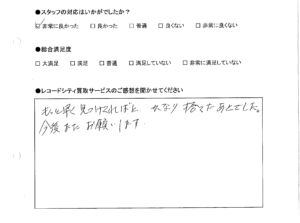 ●スタッフの対応はいかがでしたか？
☑ 非常に良かった □ 良かった □ 普通 □ 良くない □ 非常に良くない
●総合満足度
□ 大満足 □ 満足 □ 普通 □ 満足していない □ 非常に満足していない
●レコードシティ買取サービスのご感想を聞かせてください
もっと早く見つけてればと、かなり捨てたあとでした。
今後またお願いします。